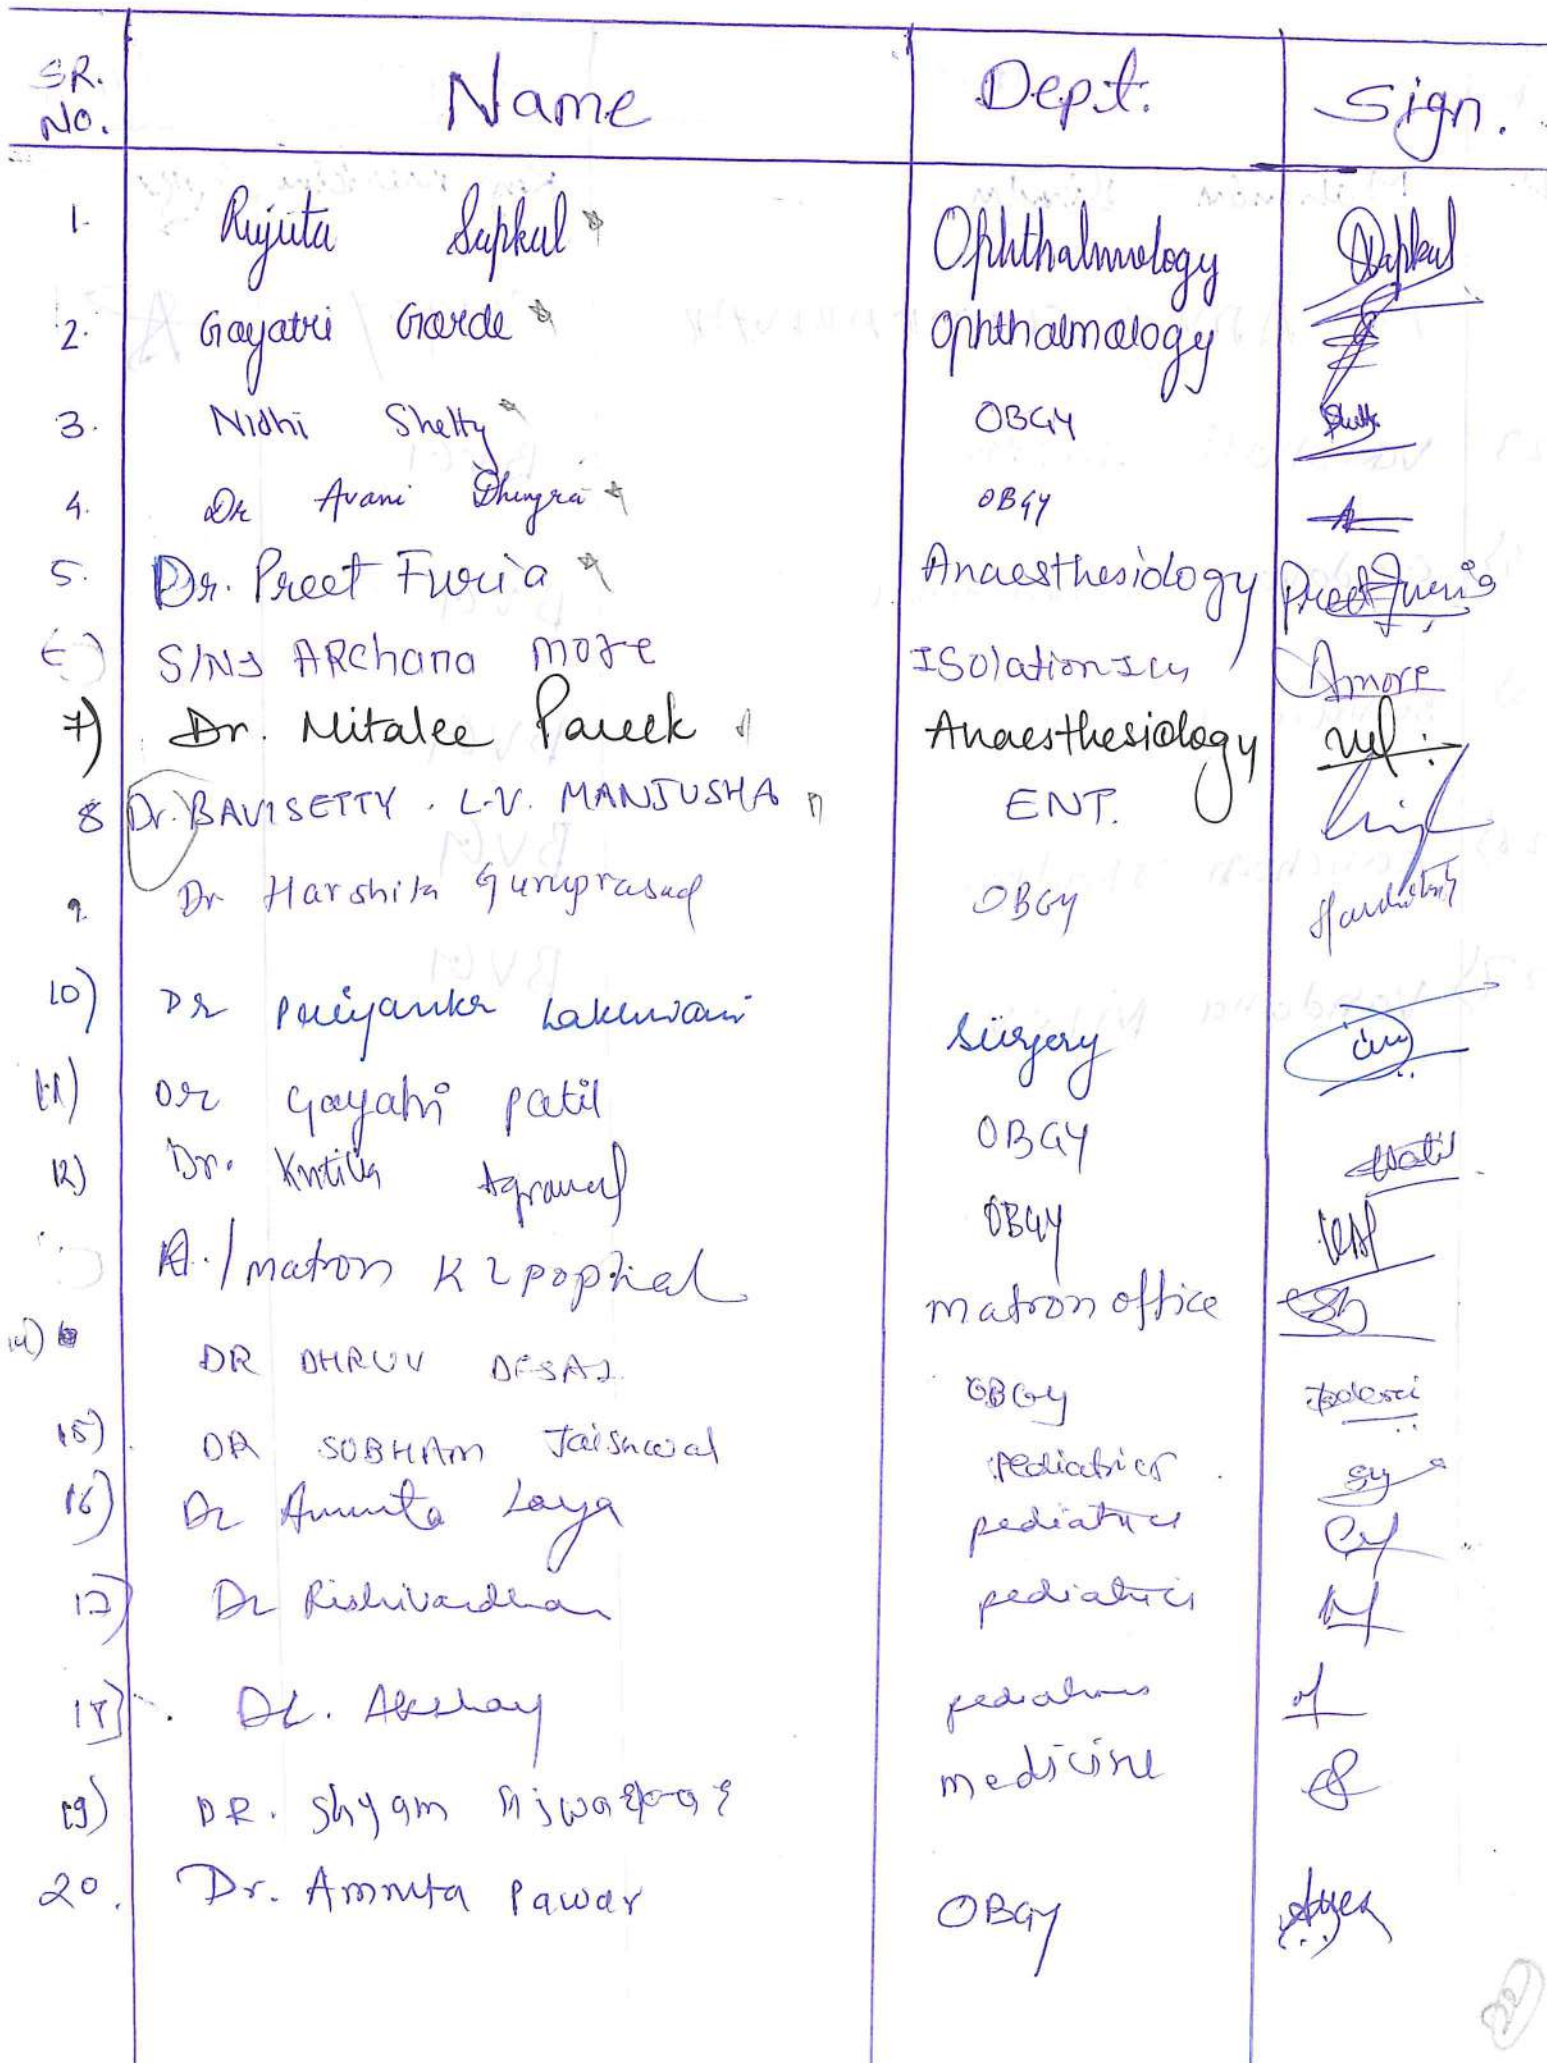 SR. NO. Name Dept. Sign.
1. Rujuta Sapkal Ophthalmology Sapkal
2. Gayatri Garde Ophthalmology
3. Nidhi Shetty OBGY
4. Dr Avani Dhingra OBGY
5. Dr. Preet Furia Anaesthesiology Preet Furia
ARchana more Isolation Icu Amore
7) Dr. Mitalee Pareek Anaesthesiology
8 Dr. BAVISETTY . L.V. MANJUSHA ENT.
9. Dr Harshita Guruprasad OBGY
10) Dr Priyanka Lakhwani Surgery
11) Dr Gayatri Patil OBGY Patil
12) Dr. Kritika Agrawal OBGY
A./matron matron office
14) DR DHRUV DESAI OBGY
15) DR SUBHAM Jaiswal Pediatrics
16) Dr Amruta pediatrics
17) Dr Rishivardhan pediatrics
18) Dr. Akshay pediatrics
19) DR. Shyam medicine
20. Dr. Amruta Pawar OBGY